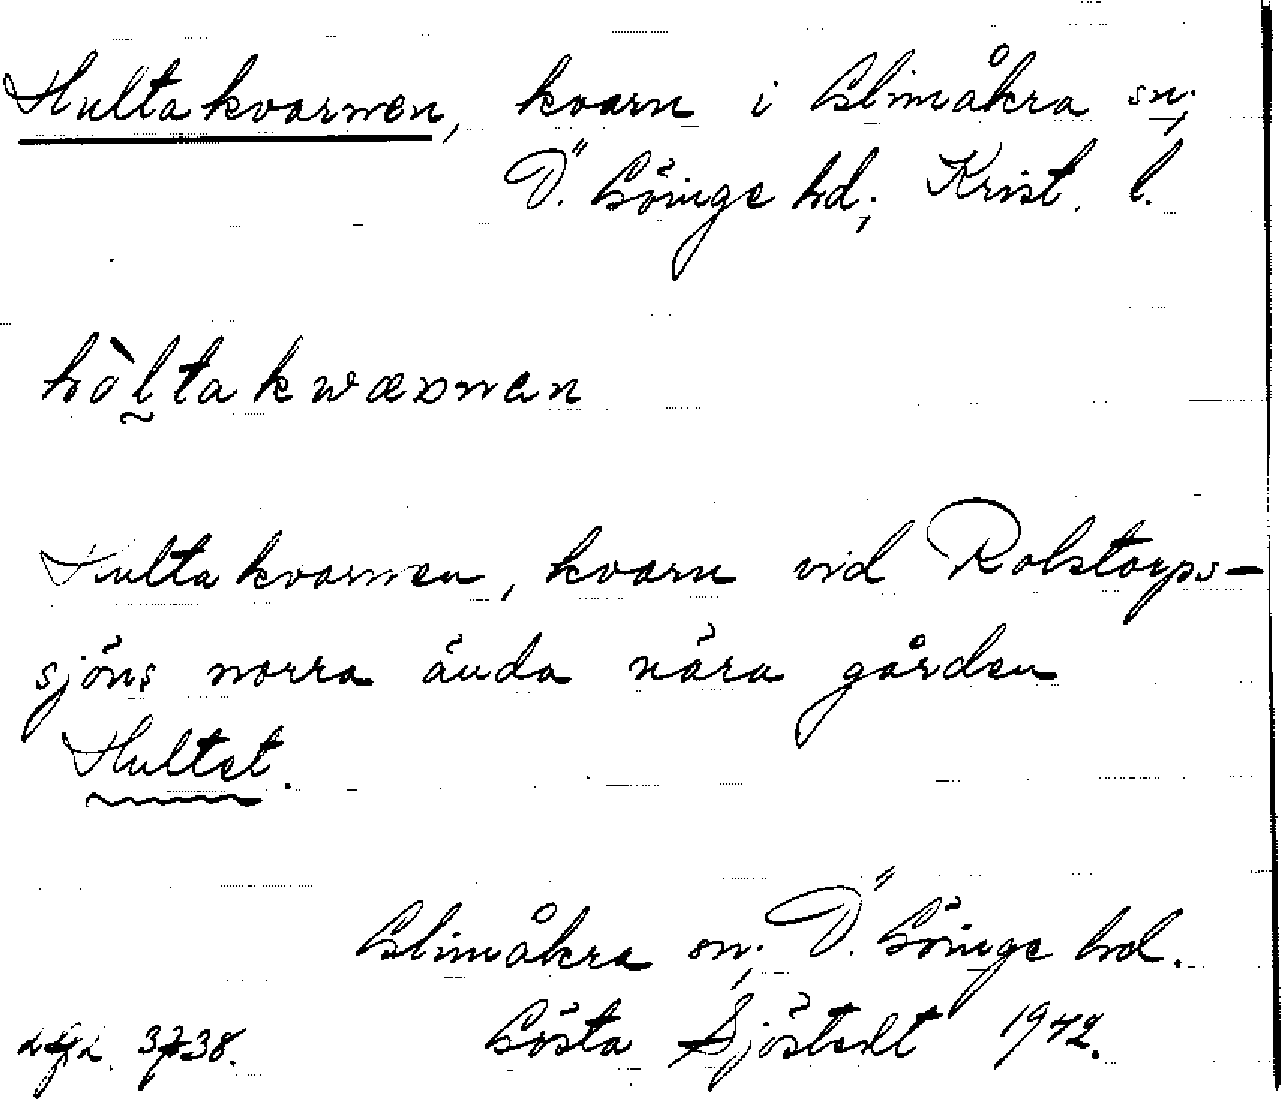 Hultakvarnen, kvarn i Glimåkra sn;
Ö. Göinge hd; Krist. l.
hòltakwæɒnen
Hultakvarnen, kvarn vid Rolstorps-
sjöns norra ända nära gården
Hultet.
Glimåkra sn; Ö. Göinge hd.
Gösta Sjöstedt 1942.
3738.